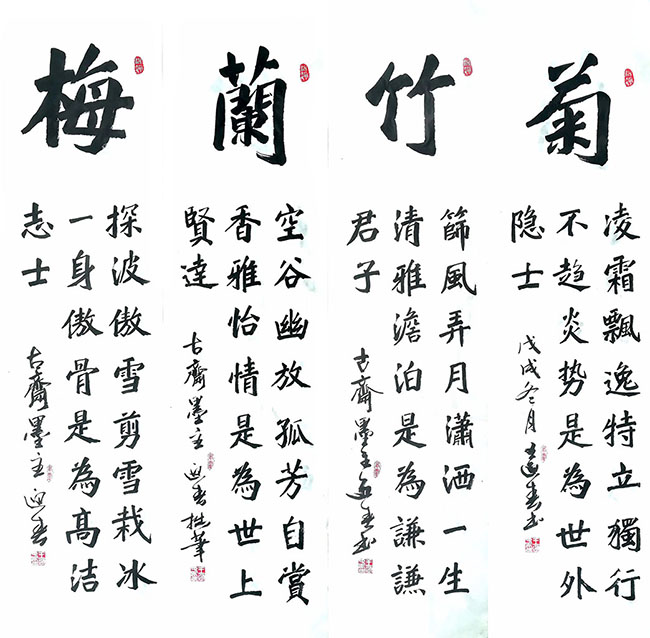 梅
探波傲雪剪雪栽冰
一身傲骨是為高洁
志士
古齋墨主迎春
蘭
空谷幽放孤芳自賞
香雅怡情是為世上
賢達
古齋墨主迎春拙筆
竹
篩風弄月瀟洒一生
清雅澹泊是為謙謙
君子
古齋墨主迎春书
菊
凌霜飄逸特立獨行
不趋炎势是為世外
隐士
戊戌冬月迎春书